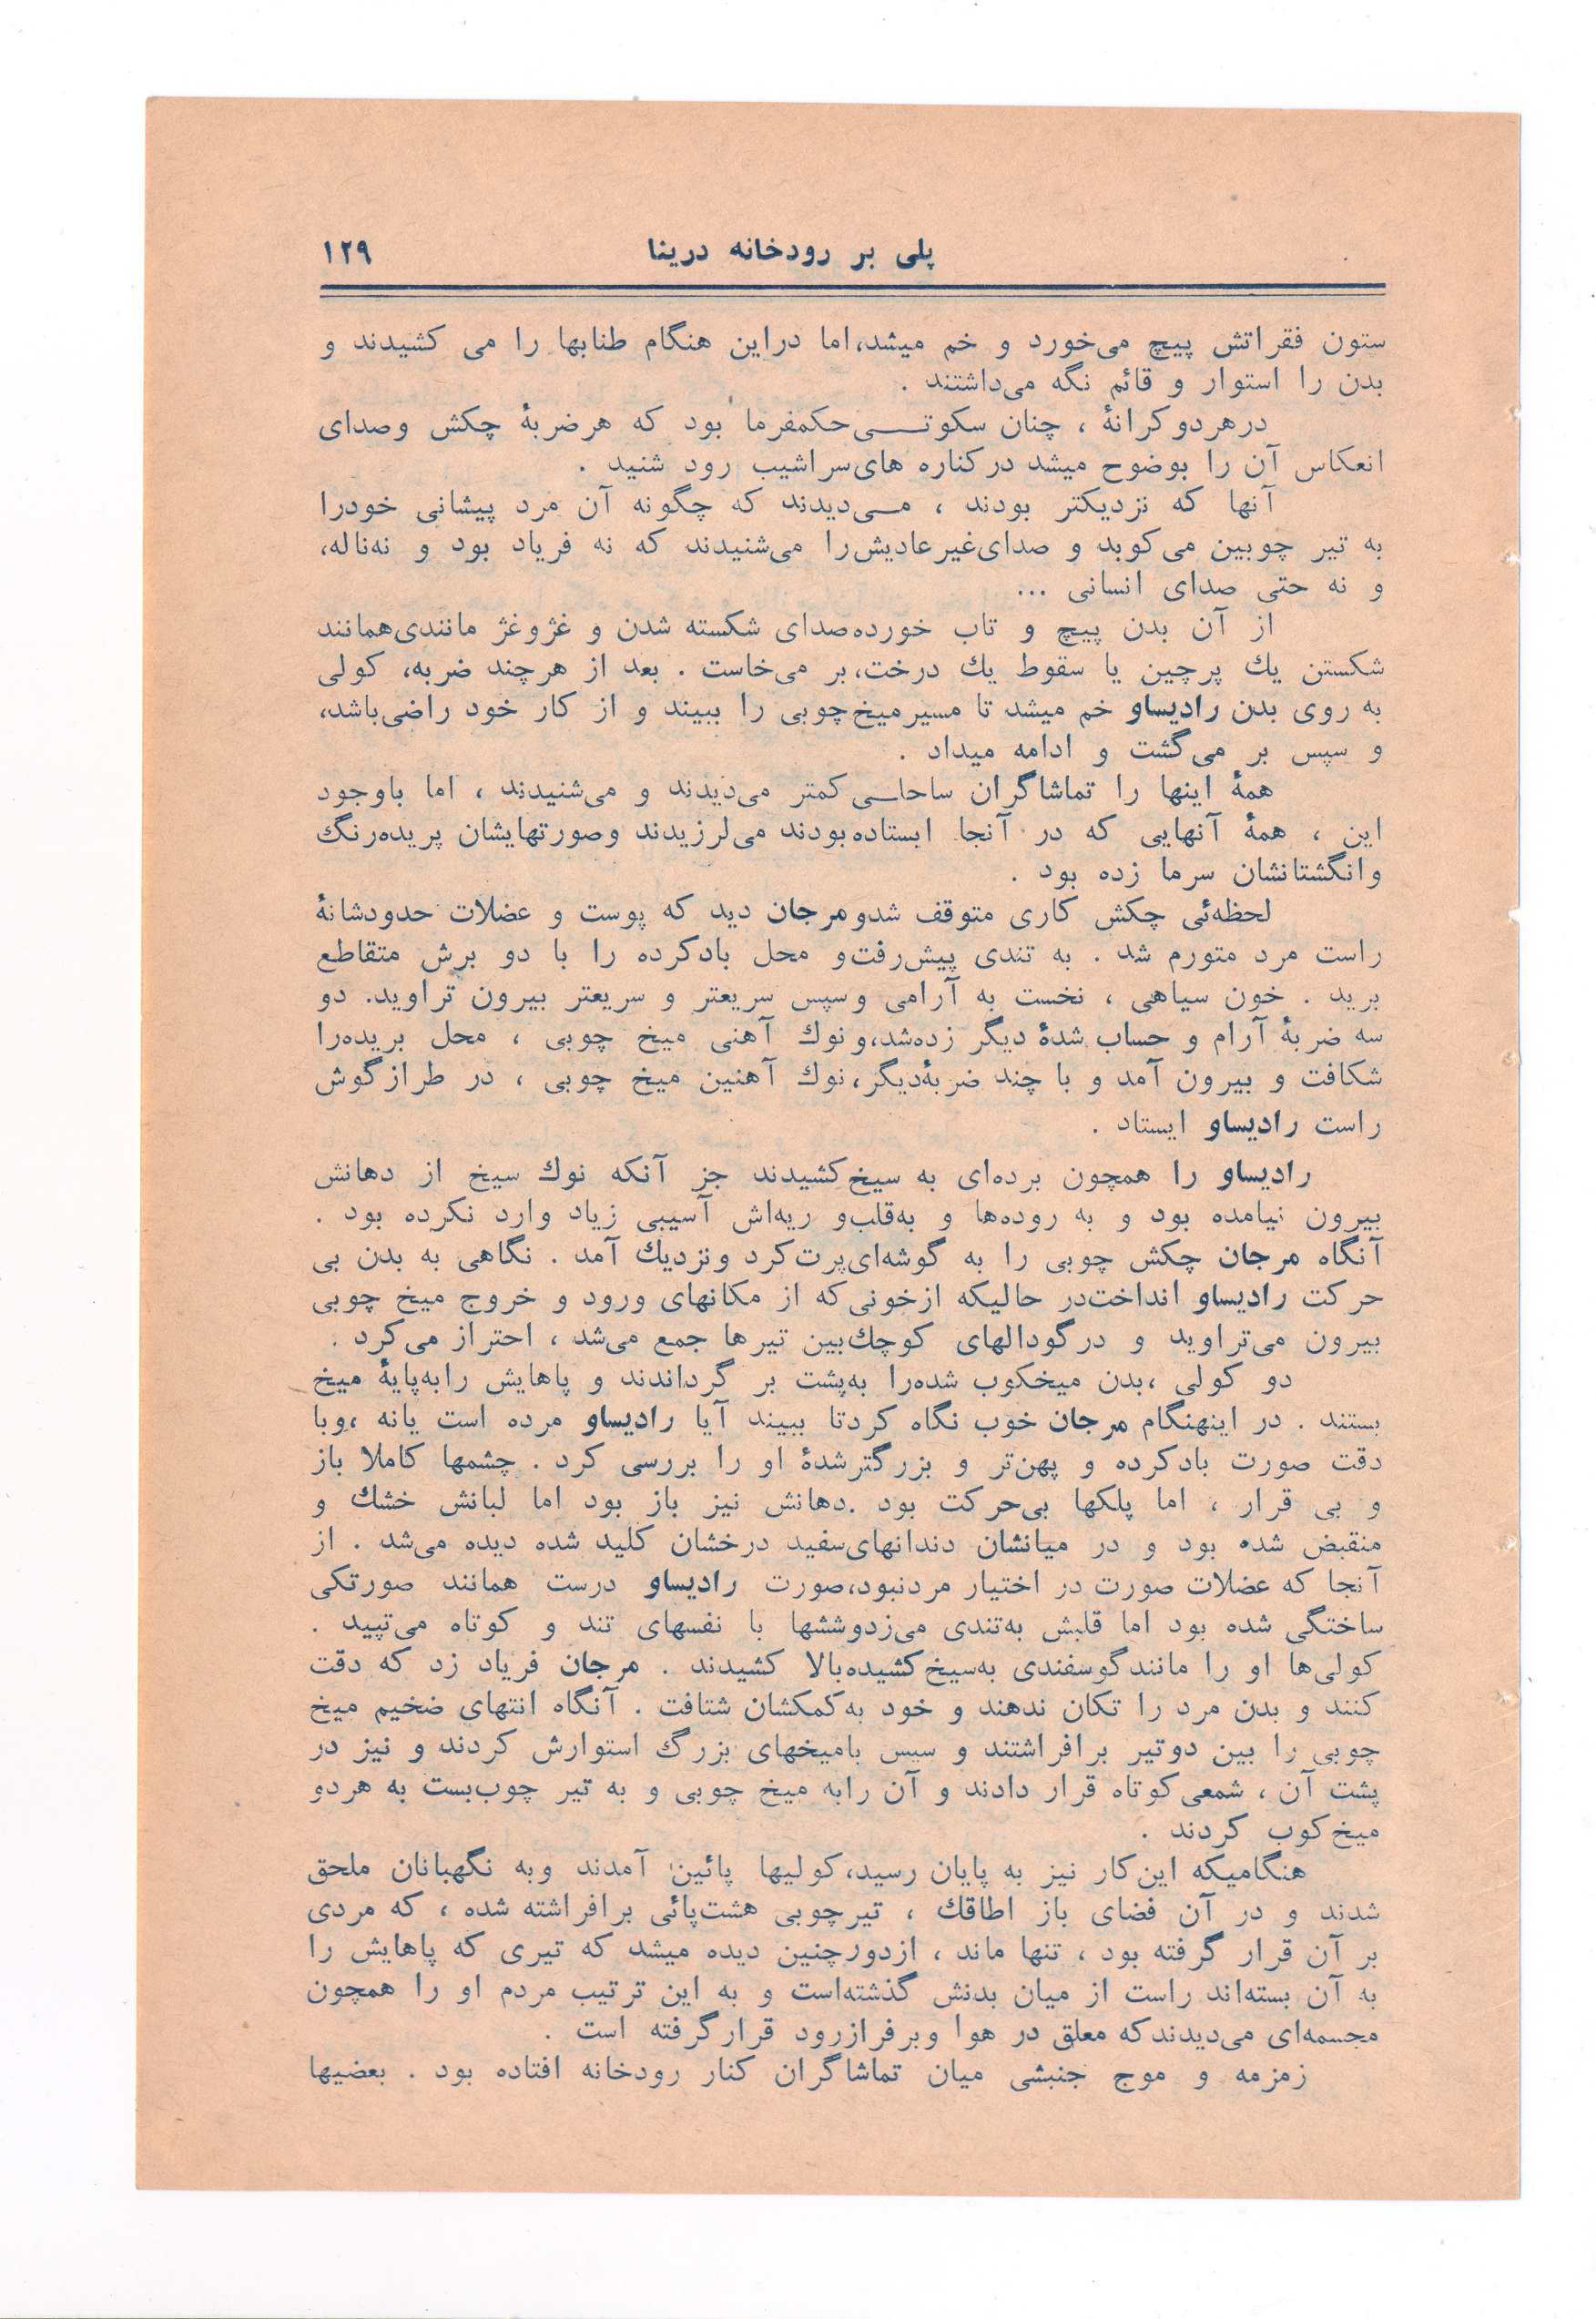 پلی بر رودخانه درینا ۱۲۹
ستون فقراتش پیچ می‌خورد و خم میشد،اما دراین هنگام طنابها را می کشیدند و
بدن را استوار و قائم نگه می‌داشتند .
درهردوکرانهٔ ، چنان سکوتـــی‌حکمفرما بود که هرضربهٔ چکش وصدای
انعکاس آن را بوضوح میشد درکناره های‌سراشیب رود شنید .
آنها که نزدیکتر بودند ، مــی‌دیدند که چگونه آن مرد پیشانی خودرا
به تیر چوبین می‌کوبد و صدای‌غیرعادیش‌را می‌شنیدند که نه فریاد بود و نه‌ناله،
و نه حتی صدای انسانی ...
از آن بدن پیچ و تاب خورده‌صدای شکسته شدن و غژوغژ مانندی‌همانند
شکستن یك پرچین یا سقوط یك درخت،بر می‌خاست . بعد از هرچند ضربه، کولی
به روی بدن رادیساو خم میشد تا مسیرمیخ‌چوبی را ببیند و از کار خود راضی‌باشد،
و سپس بر می‌گشت و ادامه میداد .
همهٔ اینها را تماشاگران ساحلــی کمتر می‌دیدند و می‌شنیدند ، اما باوجود
این ، همهٔ آنهایی که در آنجا ایستاده‌بودند می‌لرزیدند وصورتهایشان پریده‌رنگ
وانگشتانشان سرما زده بود .
لحظه‌ئی چکش کاری متوقف شدومرجان دید که پوست و عضلات حدودشانهٔ
راست مرد متورم شد . به تندی پیش‌رفت‌و محل بادکرده را با دو برش متقاطع
برید . خون سیاهی ، نخست به آرامی وسپس سریعتر و سریعتر بیرون تراوید. دو
سه ضربهٔ آرام و حساب شدهٔ دیگر زده‌شد،ونوك آهنی میخ چوبی ، محل بریده‌را
شکافت و بیرون آمد و با چند ضربهٔ‌دیگر،نوك آهنین میخ چوبی ، در طرازگوش
راست رادیساو ایستاد .
رادیساو را همچون برده‌ای به سیخ‌کشیدند جز آنکه نوك سیخ از دهانش
بیرون نیامده بود و به روده‌ها و به‌قلب‌و ریه‌اش آسیبی زیاد وارد نکرده بود .
آنگاه مرجان چکش چوبی را به گوشه‌ای‌پرت‌کرد ونزدیك آمد . نگاهی به بدن بی
حرکت رادیساو انداخت‌در حالیکه ازخونی‌که از مکانهای ورود و خروج میخ چوبی
بیرون می‌تراوید و درگودالهای کوچك‌بین تیرها جمع می‌شد ، احتراز می‌کرد .
دو کولی ،بدن میخکوب شده‌را به‌پشت بر گرداندند و پاهایش رابه‌پایهٔ میخ
بستند . در اینهنگام مرجان خوب نگاه کردتا ببیند آیا رادیساو مرده است یانه ،وبا
دقت صورت بادکرده و پهن‌تر و بزرگترشدهٔ او را بررسی کرد . چشمها کاملا باز
و بی قرار ، اما پلکها بی‌حرکت بود .دهانش نیز باز بود اما لبانش خشك و
منقبض شده بود و در میانشان دندانهای‌سفید درخشان کلید شده دیده می‌شد . از
آنجا که عضلات صورت در اختیار مردنبود،صورت رادیساو درست همانند صورتکی
ساختگی شده بود اما قلبش به‌تندی می‌زدوششها با نفسهای تند و کوتاه می‌تپید .
کولی‌ها او را مانندگوسفندی به‌سیخ‌کشیده‌بالا کشیدند . مرجان فریاد زد که دقت
کنند و بدن مرد را تکان ندهند و خود به‌کمکشان شتافت . آنگاه انتهای ضخیم میخ
چوبی را بین دوتیر برافراشتند و سپس بامیخهای بزرگ استوارش کردند و نیز در
پشت آن ، شمعی‌کوتاه قرار دادند و آن رابه میخ چوبی و به تیر چوب‌بست به هردو
میخ‌کوب کردند .
هنگامیکه این‌کار نیز به پایان رسید،کولیها پائین آمدند وبه نگهبانان ملحق
شدند و در آن فضای باز اطاقك ، تیرچوبی هشت‌پائی برافراشته شده ، که مردی
بر آن قرار گرفته بود ، تنها ماند ، ازدورچنین دیده میشد که تیری که پاهایش را
به آن بسته‌اند راست از میان بدنش گذشته‌است و به این ترتیب مردم او را همچون
مجسمه‌ای می‌دیدندکه معلق در هوا وبرفرازرود قرارگرفته است .
زمزمه و موج جنبشی میان تماشاگران کنار رودخانه افتاده بود . بعضیها